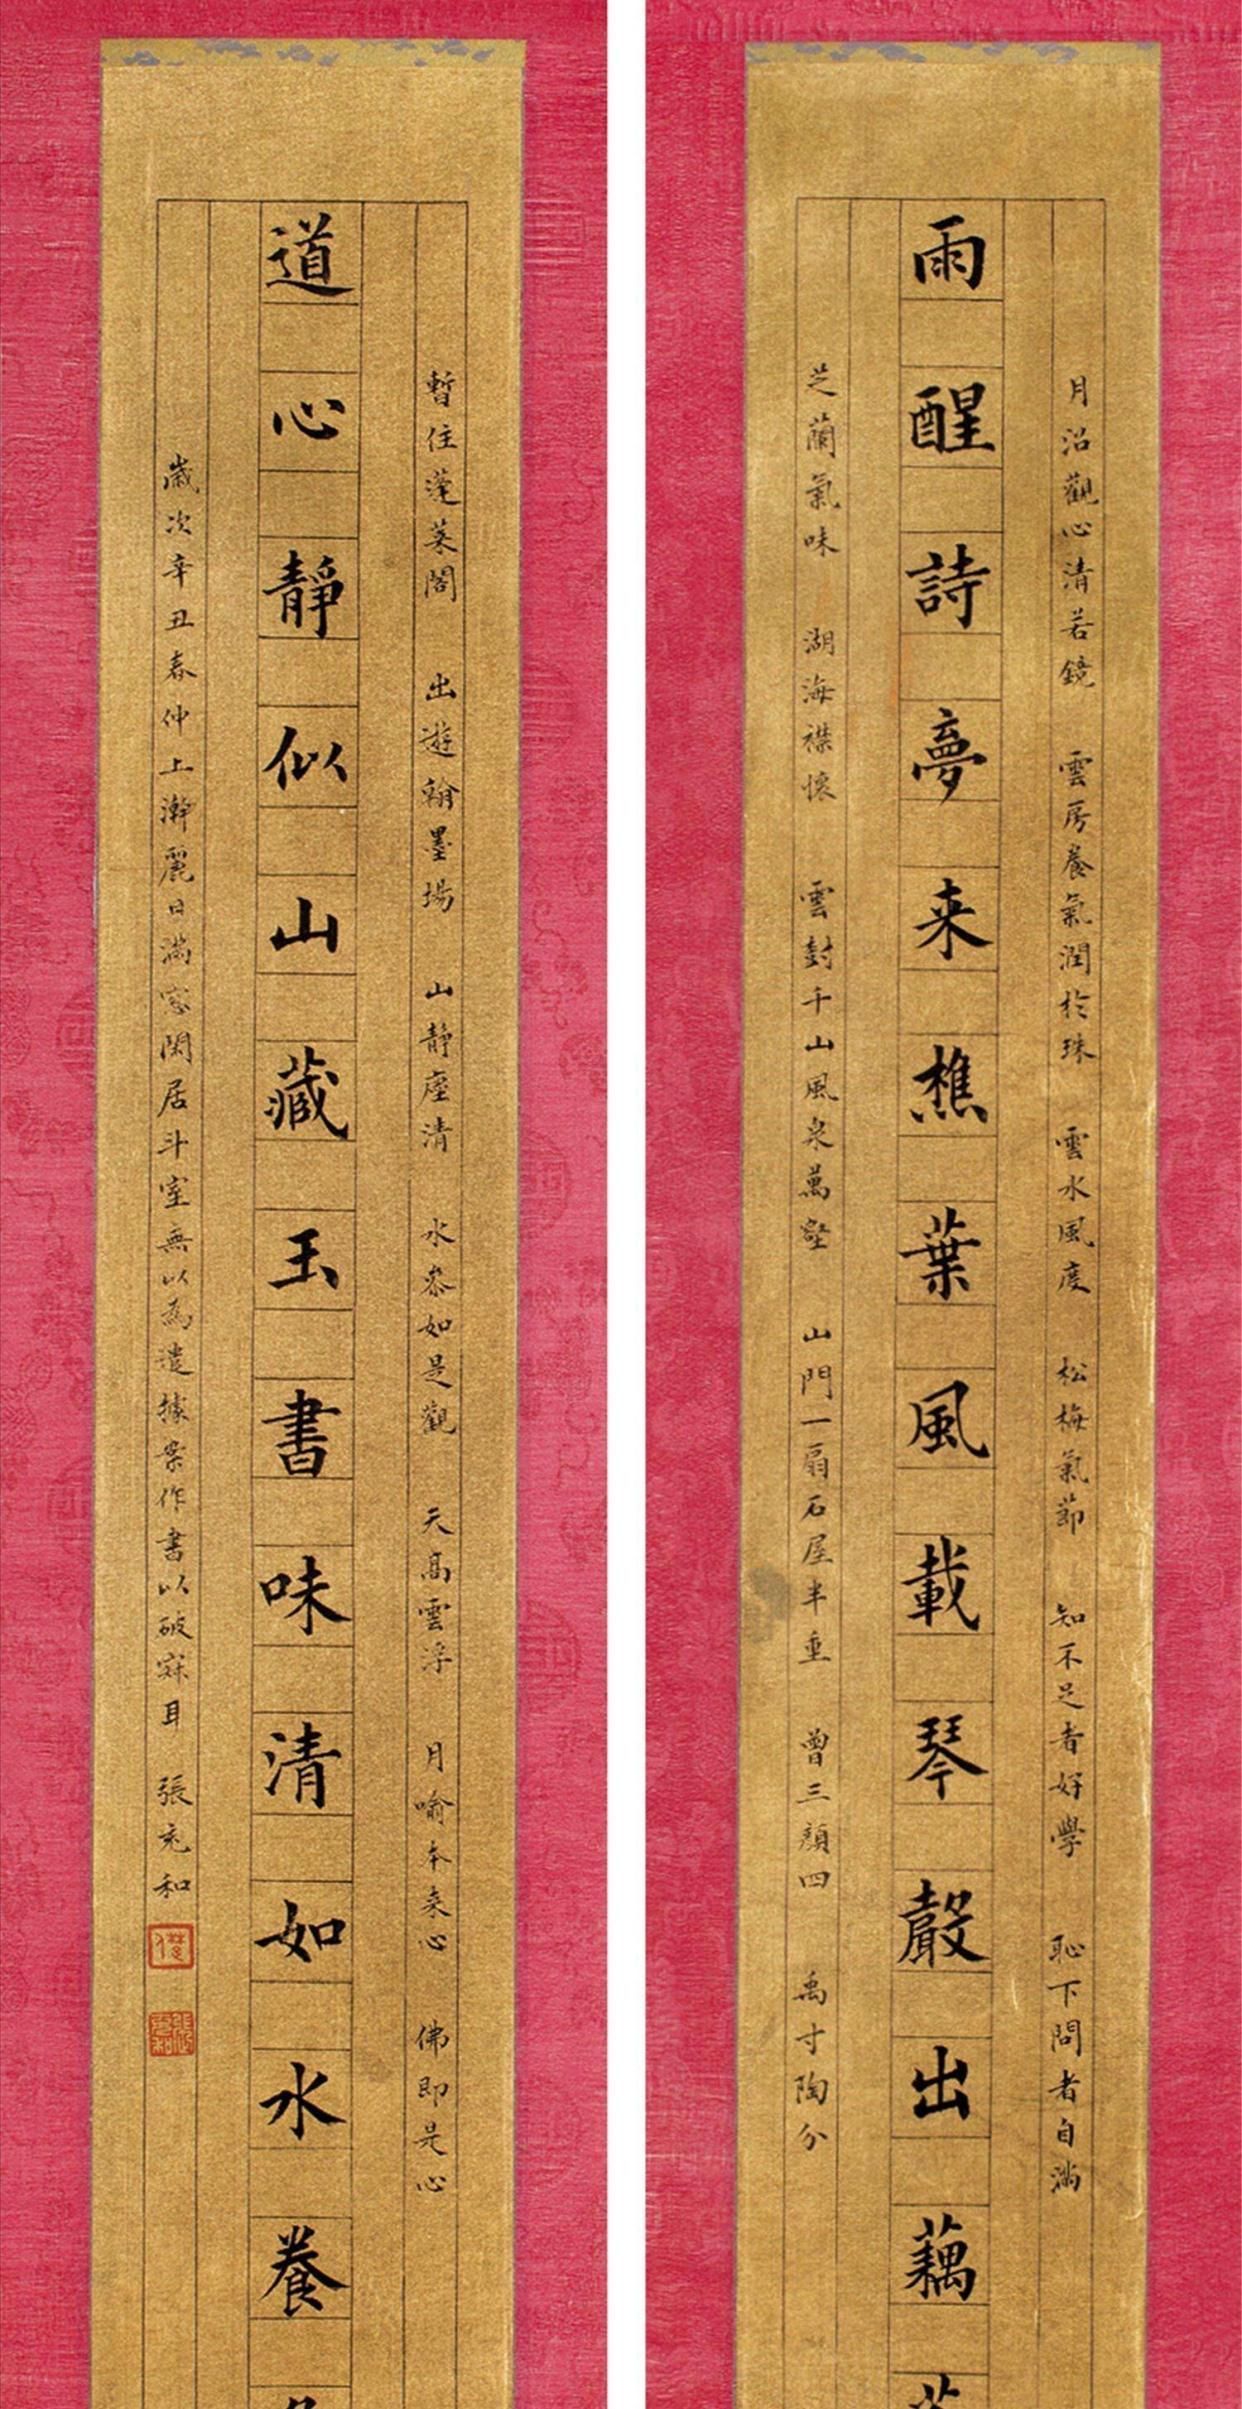 月沼觀心清若鏡 雲房養氣潤於珠 雲水風度 松梅氣節 知不足者好學 恥下問者自滿
雨醒詩夢来樵葉風載琴聲出藕
芝蘭氣味 湖海襟懷 雲封千山風泉萬壑 山門一扇石屋半垂 曾三顏四 禹寸陶分
暫住蓬莱閣 出遊翰墨場 山靜塵清 水叅如是觀 天高雲浮 月喻本来心 佛即是心
道心靜似山藏玉書味清如水養
歲次辛丑春仲上澣麗日滿窓閑居斗室無以為遣據案作書以破寂耳 張充和